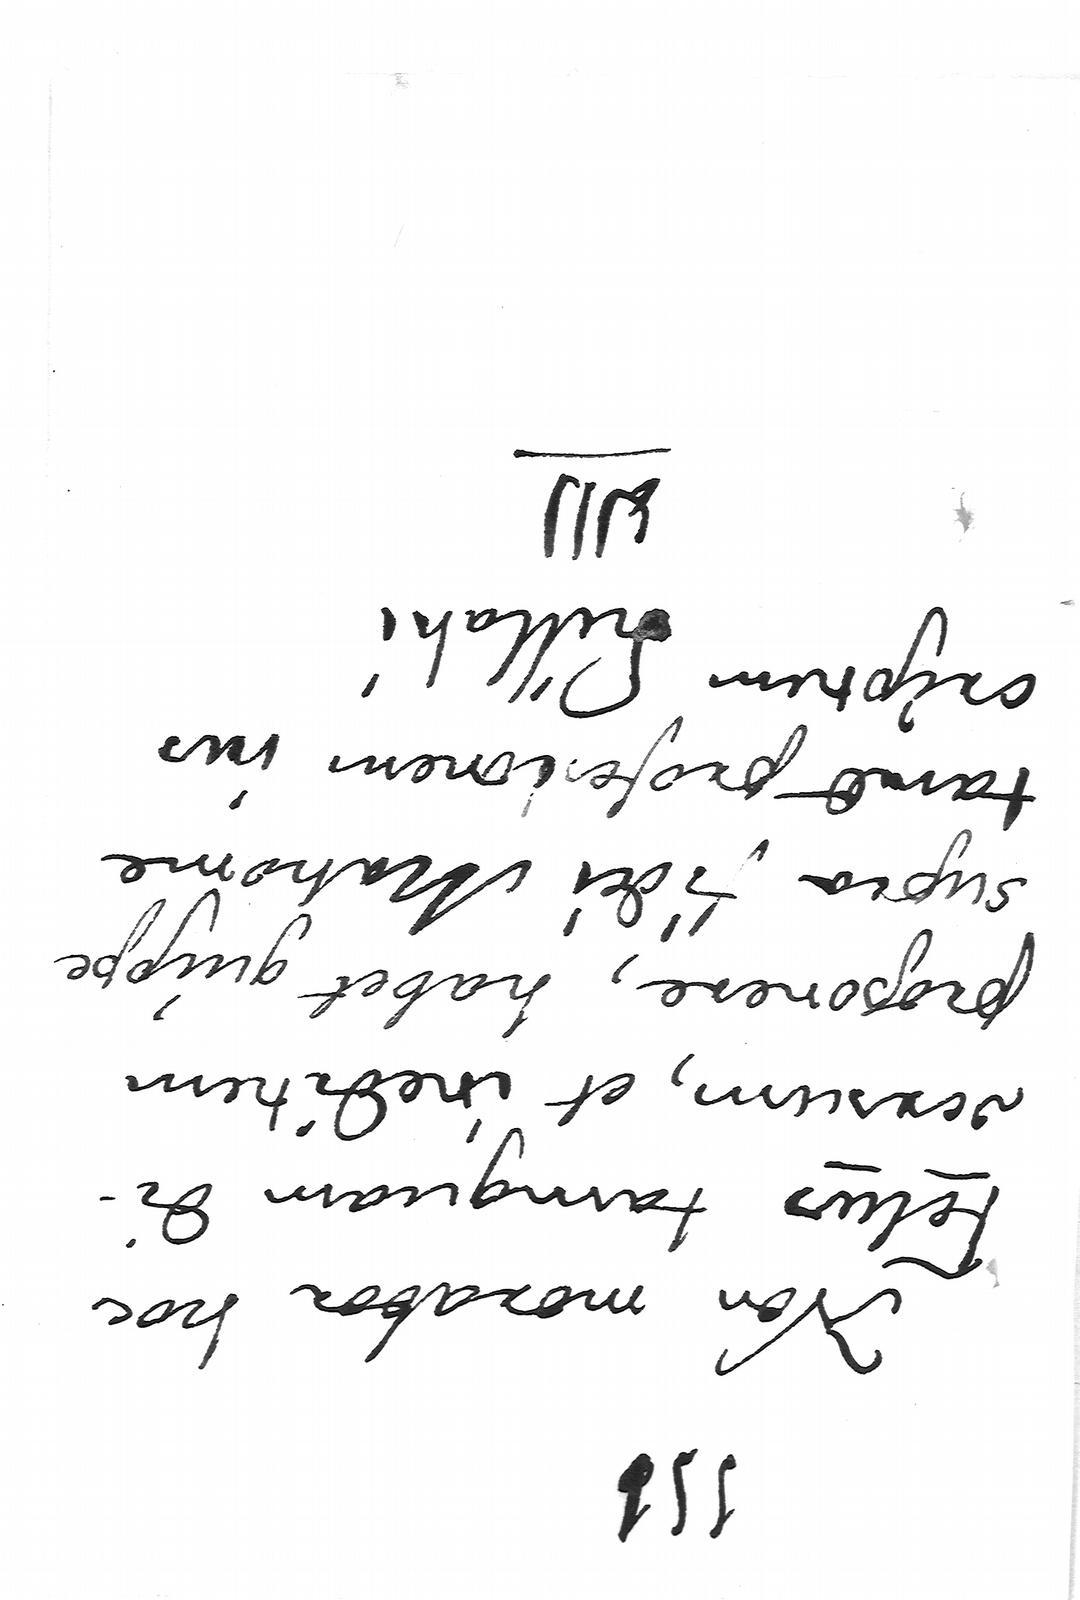 Non morabor hoc
Felus tamquam di-
versum, et ineditum
proponere, habet quippe
supra fidei Mahome
tanae professionem ins
criptum Lillahi
لله